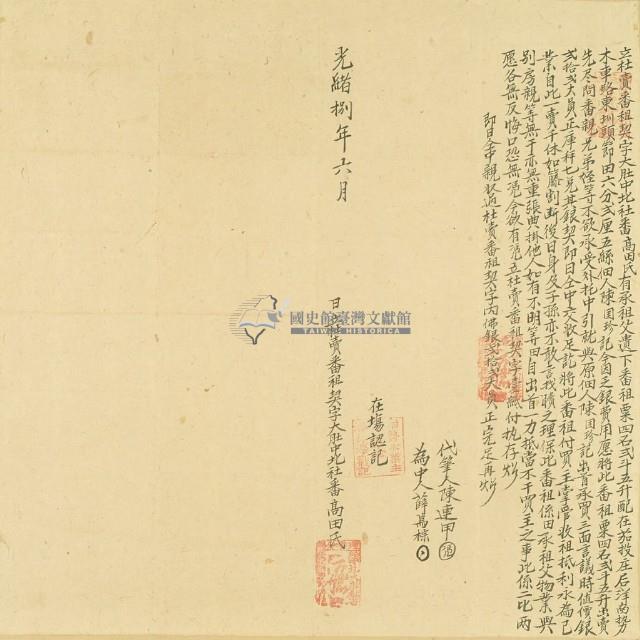 立杜賣番租契字大肚中北社番高田氏有承租父遺下番租粟四石弍斗五升配在茄投庄后洋南勢
木車路東圳頭節田六分弍厘五絲佃人陳國珍記今因乏銀費用愿將此番租粟四石弍斗五升出賣
先尽問番親兄弟侄等不欲承受外托中引就與原佃人陳國珍記出首承買三面言議時值價銀
弍拾弍大員正庫秤七兌其銀契即日仝中交收足訖將此番租付買主掌管收租抵利永為己
業自此一賣千休如藤割斷後日身及子孫亦不敢言找贖之理保此番租係田承祖父物業與
別房親等無干亦無重張典掛他人如有不明等田自出首一力抵當不干買主之事此係二比兩
愿各無反悔口恐無凭今欲有凭立杜賣番租契字壹紙付执存炤
即日仝中親收過杜賣番租契字內佛銀弍拾弍大員正完足再炤
代筆人陳連甲
為中人薛萬標
在塲認記
日立杜賣番租契字大肚中北社番高田氏
光緒捌年六月
國史館臺灣文獻館
TAIWAN HISTORICA